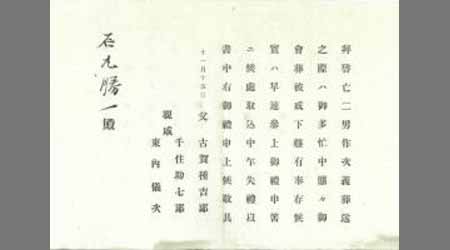 拜啓亡二男作次義葬送
之際ハ御多忙中態々御
會葬被成下難有奉存候
實ハ早速參上御禮申筈
ニ候處取込中乍失禮以
書中右御禮申上候敬具
十一月十五日
父 古賀種吉郎
親戚 千住助七郎
東內儀次
石丸勝一殿